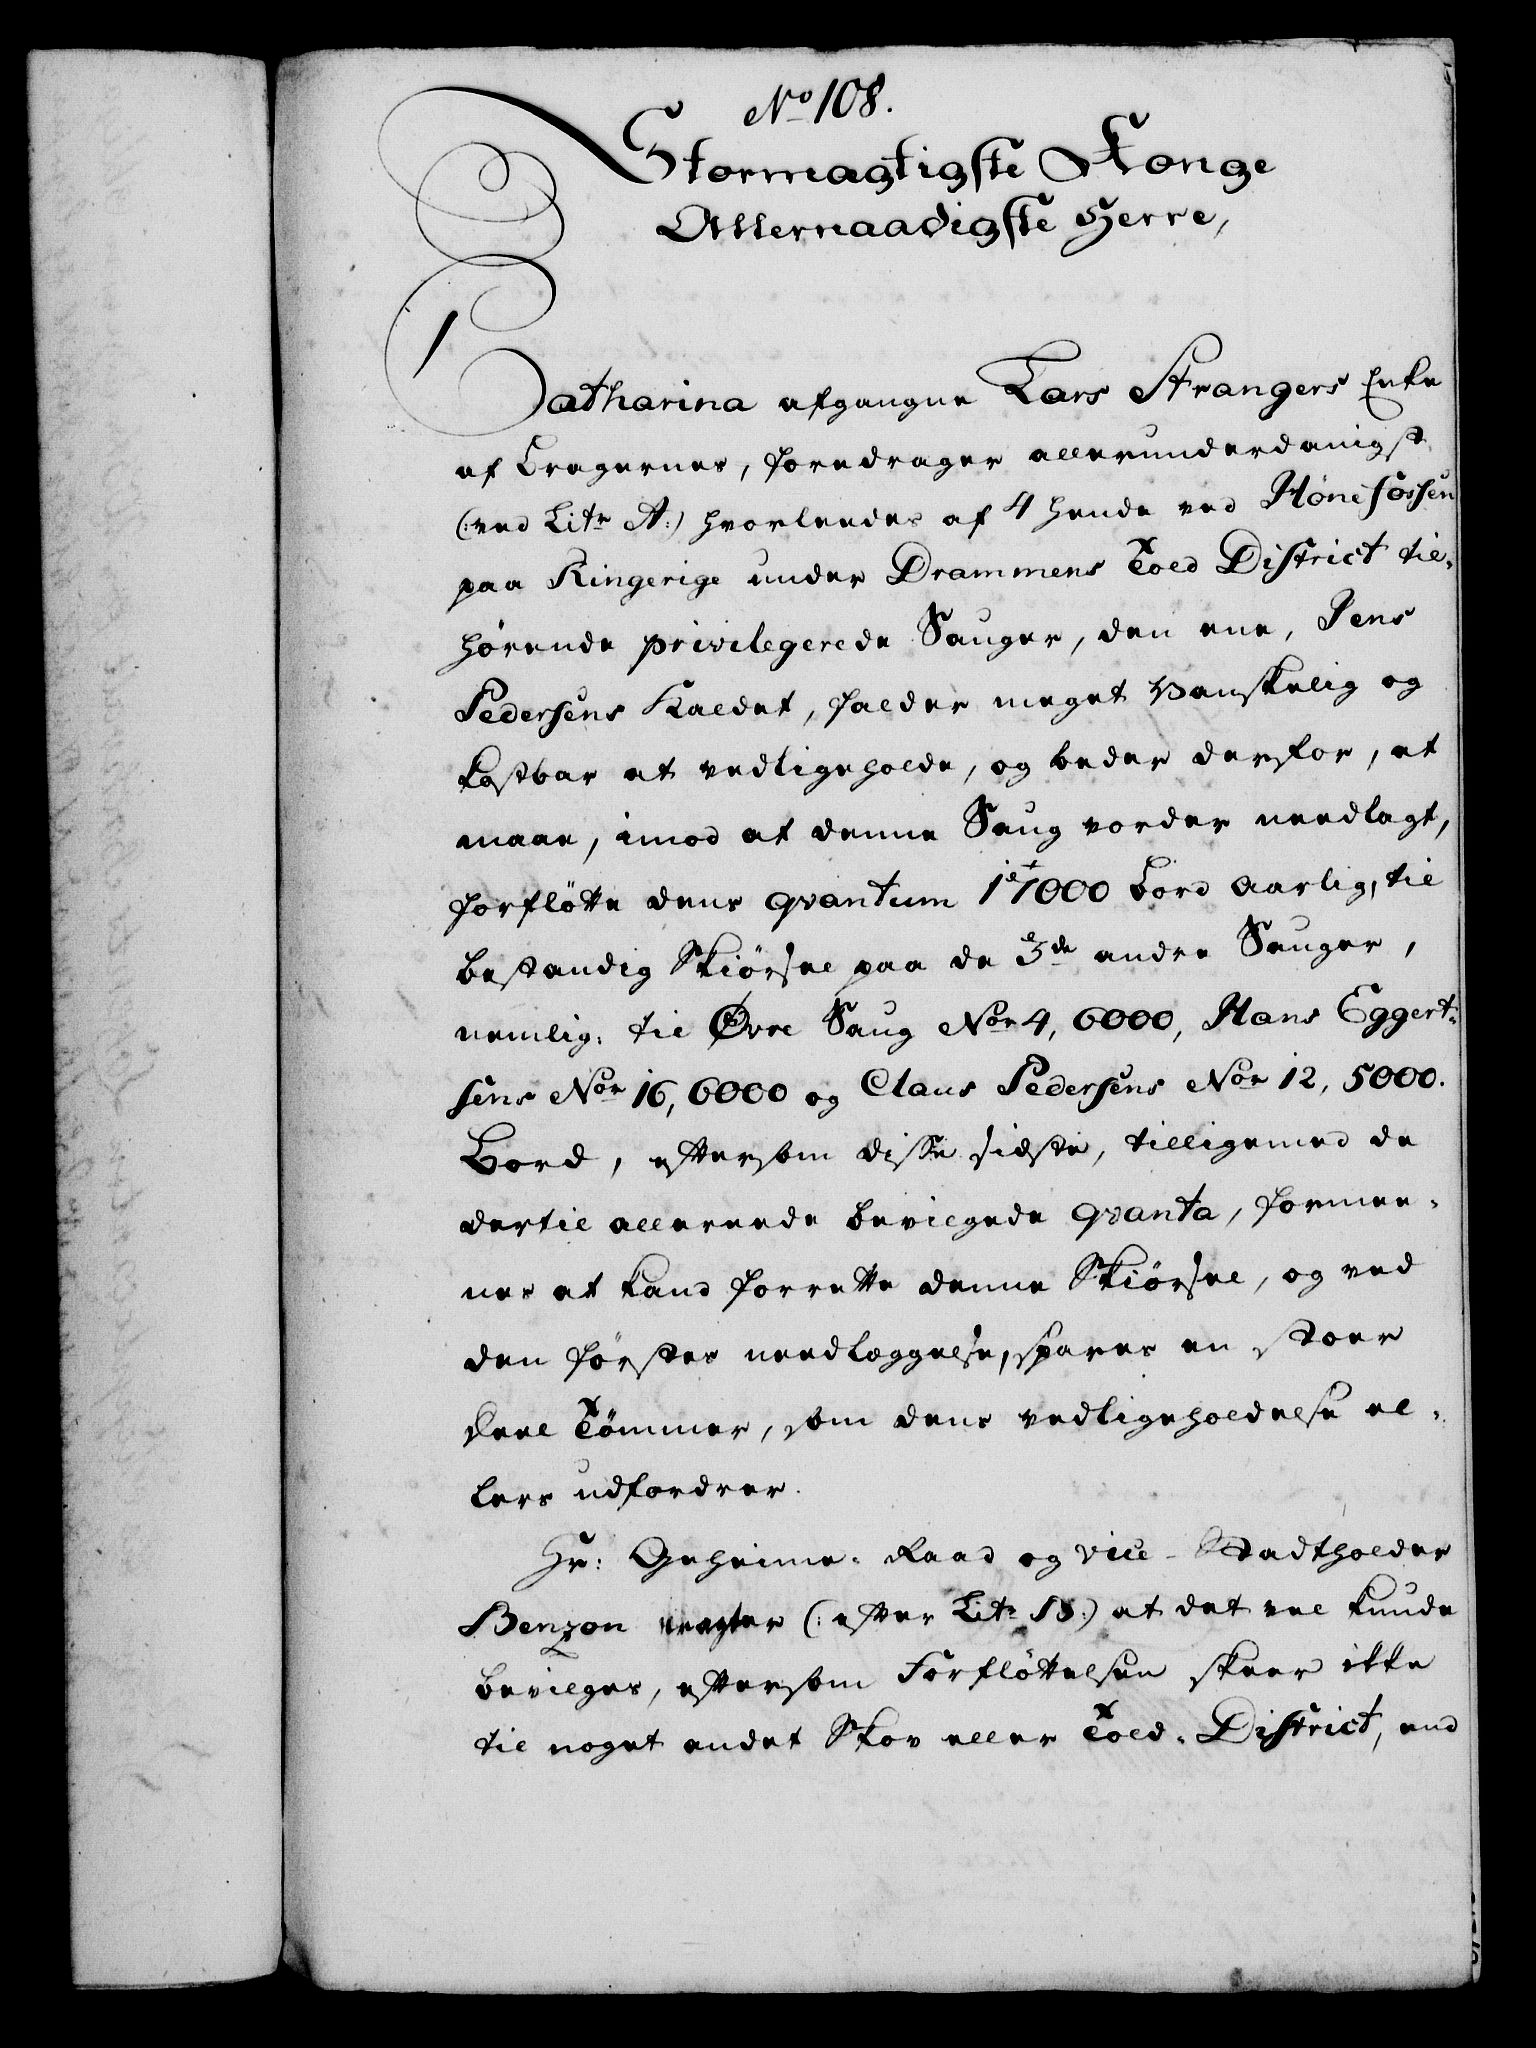 No 108.
Stormægtigste Konge
Allernaadigste Herre,
Catharina afgangne Lars Strangers Enke
af Bragernes, foredrager allerunderdanigst
(: ved Litr A:) hvorledes af 4 hende ved Hønefossen
paa Ringerige under Drammens Told District til-
hørende privilegerede Sauger, den ene, Jens
Pedersens Kaldet, falder meget vanskelig og
kostbar at vedligeholde, og beder derfor, at
maae, imod at denne Saug vorder needlagt,
forfløtte dens qvantum 17000 Bord aarlig, til
bestandig Skiørsel paa de 3de andre Sauger,
nemlig: til Øvre Saug Nor 4, 6000, Hans Eggert-
sens Nor 16, 6000 og Claus Pedersens Nor 12, 5000.
Bord, eftersom disse sidste, tilligemed de
dertil allereede bevilgede qvanta, formee-
nes at kand forrette denne Skiørsel, og ved
den førstes needlæggelse, spares en stoer
deel Tømmer, som dens vedligeholdelse el-
lers udfordrer.
Hr: Geheime-Raad og Vice-Stadtholder
Benzon (: efter Litr B:) at det vel kunde
bevilges, eftersom Forfløttelsen skeer ikke
til noget andet Skov eller Told-District, end